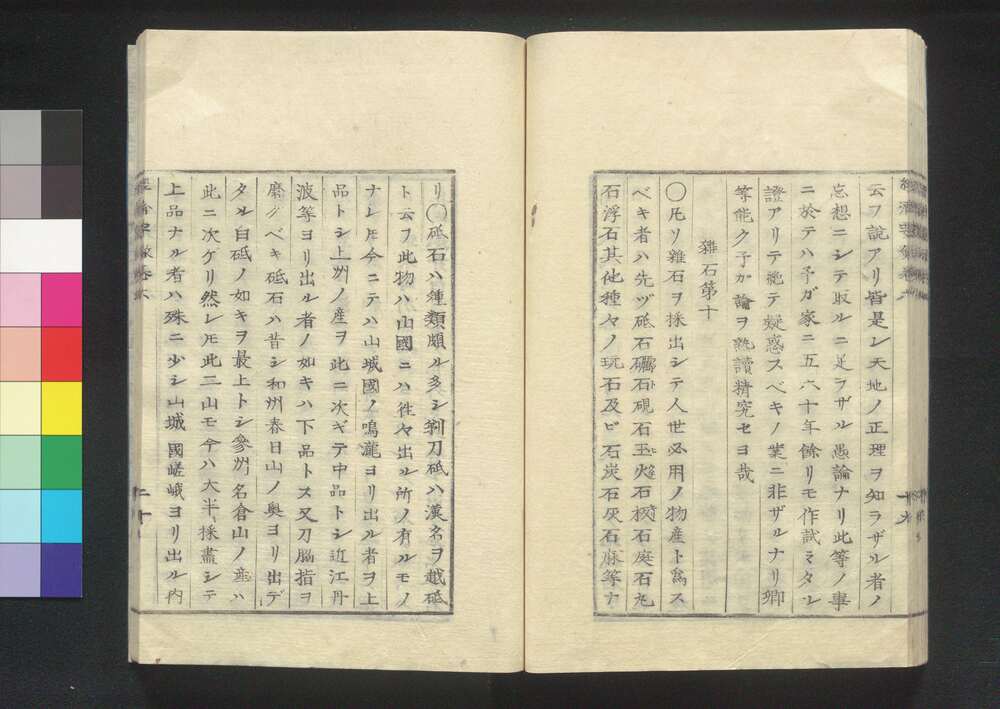 云フ說アリ皆是レ天地ノ正理ヲ知ラザル者ノ
忘想ニシテ取ルニ足ラザル愚論ナリ此等ノ事
ニ於テハ予ガ家ニ五六十年餘リモ作試ミタレ
證アリテ絶テ疑惑スベキノ業ニ非ザルナリ卿
等能ク予ガ論ヲ熟讀精究セヨ哉
雜石第十
〇凡ソ雜石ヲ採出シテ人世必用ノ物産ト爲ス
ベキ者ハ先ヅ砥石礪石硯石玉火石棋石庭石丸
石浮石其他種々ノ玩石及ビ石炭石灰石麻等ナ
十九
リ〇砥石ハ種類頗ル多シ剃刀砥ハ漢名ヲ越砥
ト云フ此物ハ山國ニハ徃々出ル所ノ有ルモノ
ナレ𪜈今ニテハ山城國ノ鳴瀧ヨリ出ル者ヲ上
品トシ上州ノ産ヲ此ニ次ギテ中品トシ近江丹
波等ヨリ出ル者ノ如キハ下品トス又刀脳指ヲ
磨グベキ砥石ハ昔シ和州春日山ノ奥ヨリ出デ
タル白砥ノ如キヲ最上トシ參州名倉山ノ産ハ
此ニ次ケリ然レ𪜈此二山モ今ハ大半採盡シテ
上品ナル者ハ殊ニ少シ山城國嵯峨ヨリ出ル内
二十